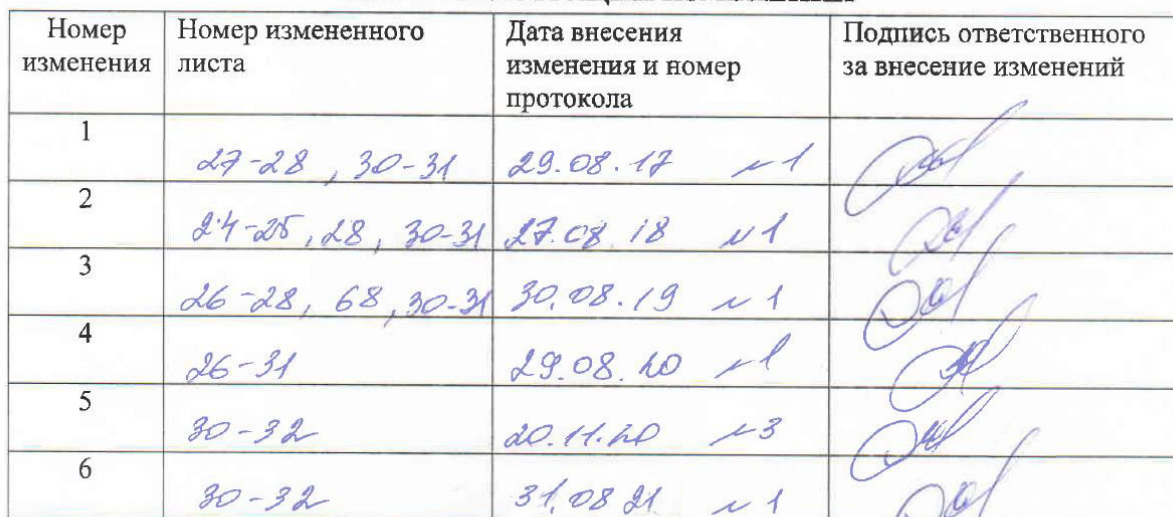 Номер изменения | Номер измененного листа | Дата внесения изменения и номер протокола | Подпись ответственного за внесение изменений
1 | 27-28, 30-31 | 29.08.17 №1
2 | 24-25, 28, 30-31 | 27.08.18 №1
3 | 26-28, 68, 30-31 | 30.08.19 №1
4 | 26-31 | 29.08.20 №1
5 | 30-32 | 20.11.20 №3
6 | 30-32 | 31.08 21 №1